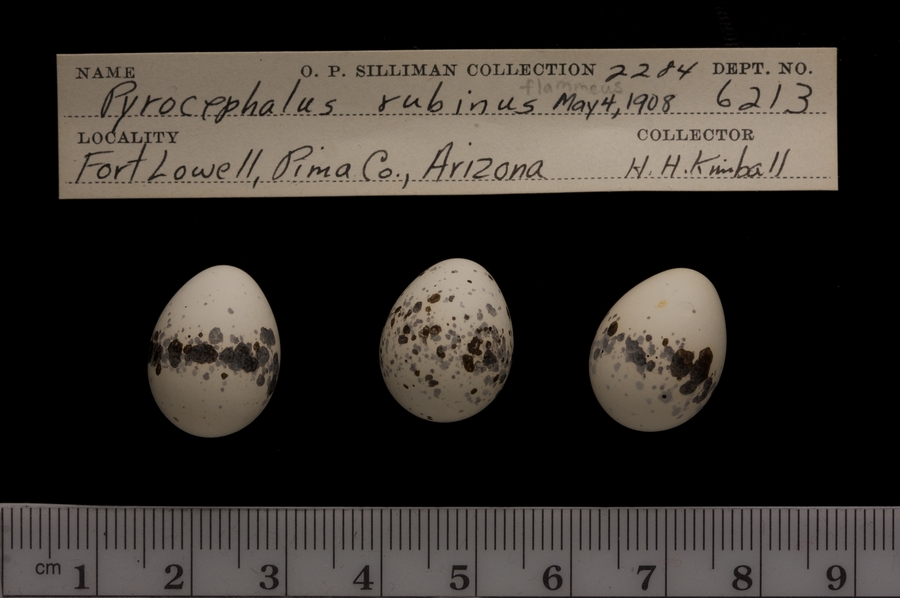 NAME O. P. SILLIMAN COLLECTION 2284 DEPT. NO.
flammeus
Pyrocephalus rubinus May 4, 1908 6213
LOCALITY COLLECTOR
Fort Lowell, Pima Co., Arizona H. H. Kimball
cm 1 2 3 4 5 6 7 8 9